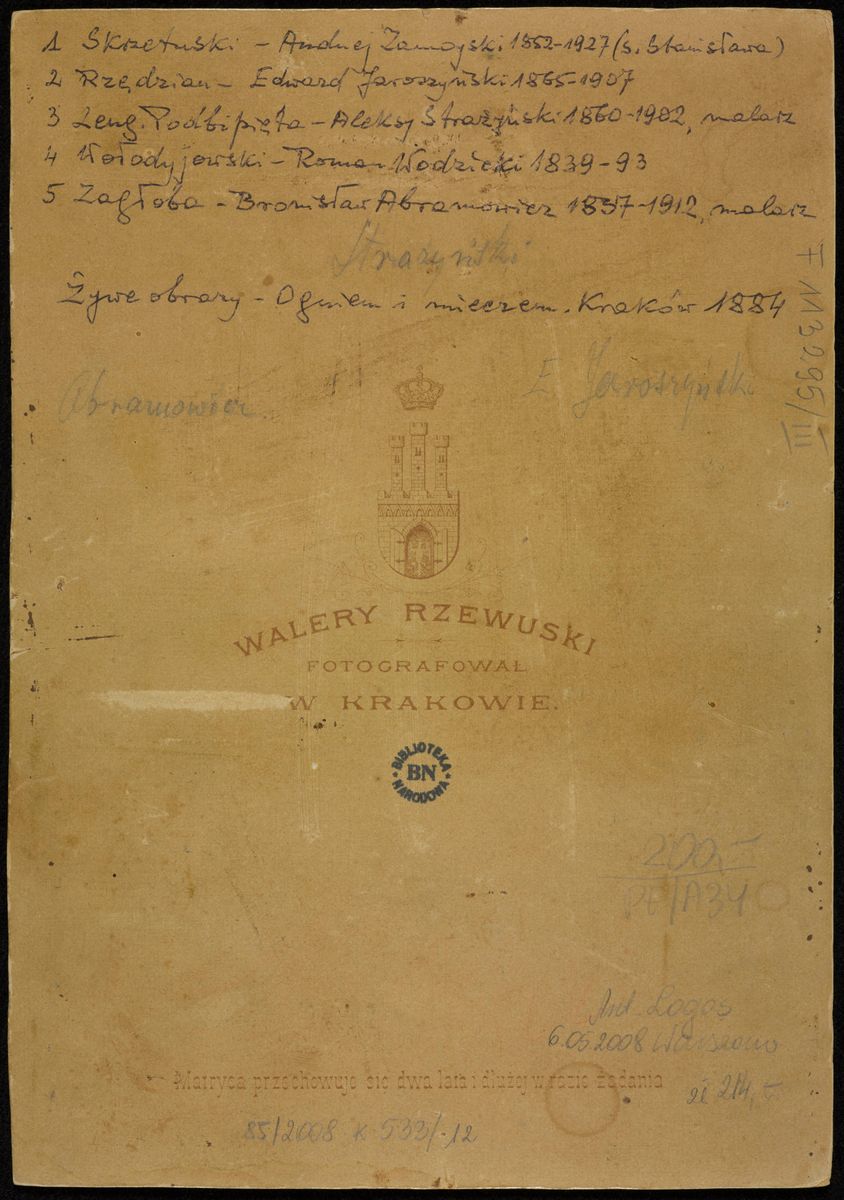 1 Skrzetuski – Andrzej Zamoyski 1852-1927 (s. Stanisława)
2 Rzędzian – Edward Jaroszyński 1865-1907
3 Long. Podbipięta – Aleksy Strażyński 1860-1902, malarz
4 Wołodyjowski – Roman Wodzicki 1839-93
5 Zagłoba – Bronisław Abramowicz 1837-1912, malarz
Strażyński
Żywe obrazy – Ogniem i mieczem. Kraków 1884
F 113295/III
Abramowicz
E Jaroszyński
WALERY RZEWUSKI
FOTOGRAFOWAŁ
W KRAKOWIE.
BIBLIOTEKA
BN
NARODOWA
200,-
PE/A34
Ant. Logos
6.05.2008 Warszawa
zł 214,-
Matryca przechowuje się dwa lata i dłużej w razie żądania
85/2008 K 533/-12